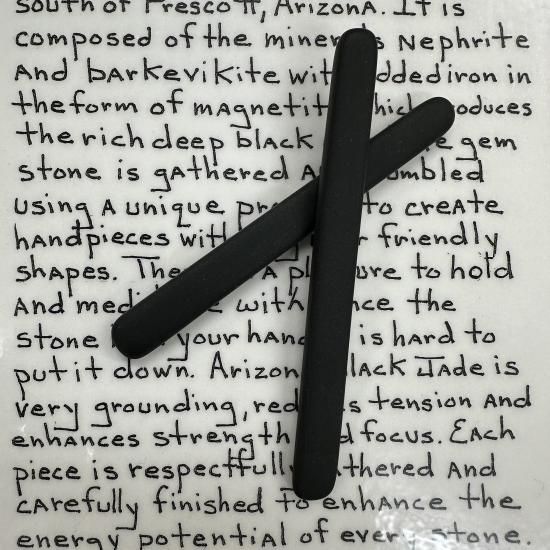 south of Prescott, Arizona. It is
composed of the minerals Nephrite
and barkevikite with added iron in
the form of magnetite which produces
the rich deep black gem
stone is gathered and tumbled
using a unique to create
handpieces with friendly
shapes. The A pleasure to hold
and meditate with once the
stone your hand is hard to
put it down. Arizona Black Jade is
very grounding, reduces tension and
enhances strength and focus. Each
piece is respectfully gathered and
carefully finished to enhance the
energy potential of every stone.